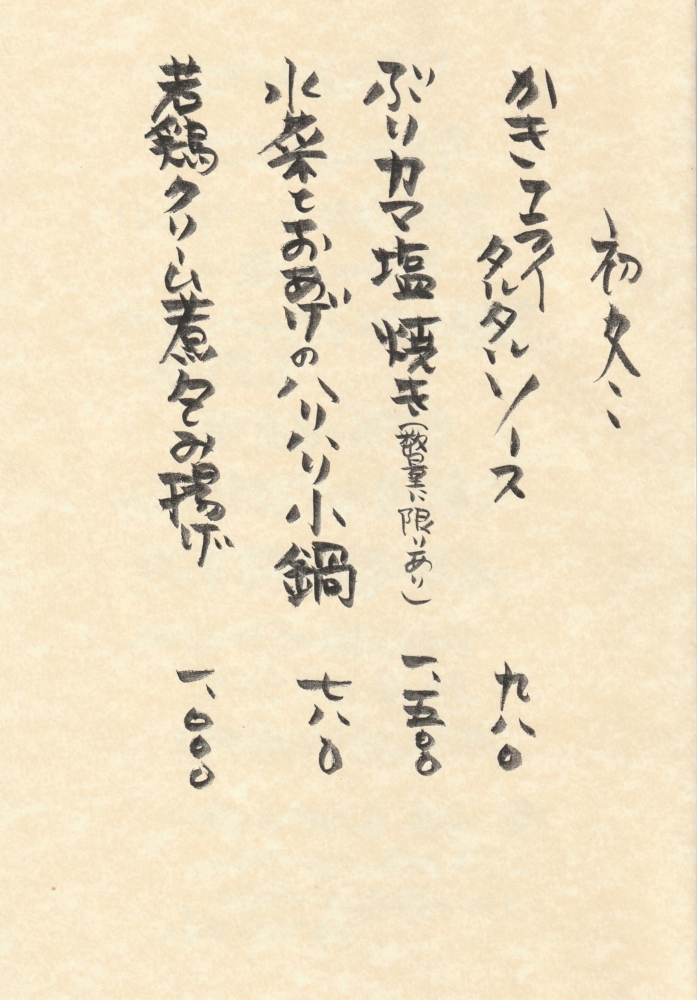 初冬
かきフライ
タルタルソース 九八〇
ぶりカマ塩焼き(数量に限りあり) 一、五〇〇
水菜とおあげのハリハリ小鍋 七八〇
若鶏クリーム煮包み揚げ 一、〇〇〇